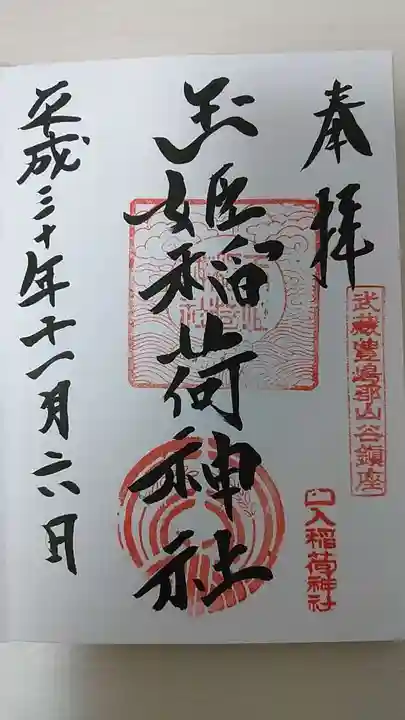 奉拝
武蔵豊嶋郡山谷鎮座
口入稲荷神社
玉姫稲荷神社
平成三十年十一月六日